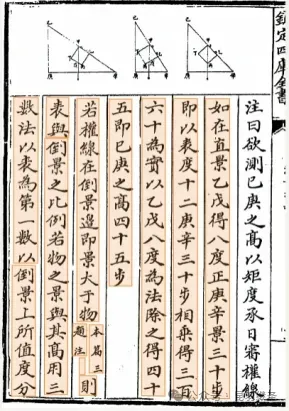 欽定四庫全書
注曰欲測已庚之髙以矩度承日審權線
如在直景乙戊得八度正庚辛景三十步
即以表度十二庚辛三十步相乗得三百
六十為實以乙戊八度為法除之得四十
五即已庚之髙四十五步
若權線在倒景邊即景大于物本篇三題注則
表與倒景之比例若物之景與其髙用三
數法以表為第一數以倒景上所值度分